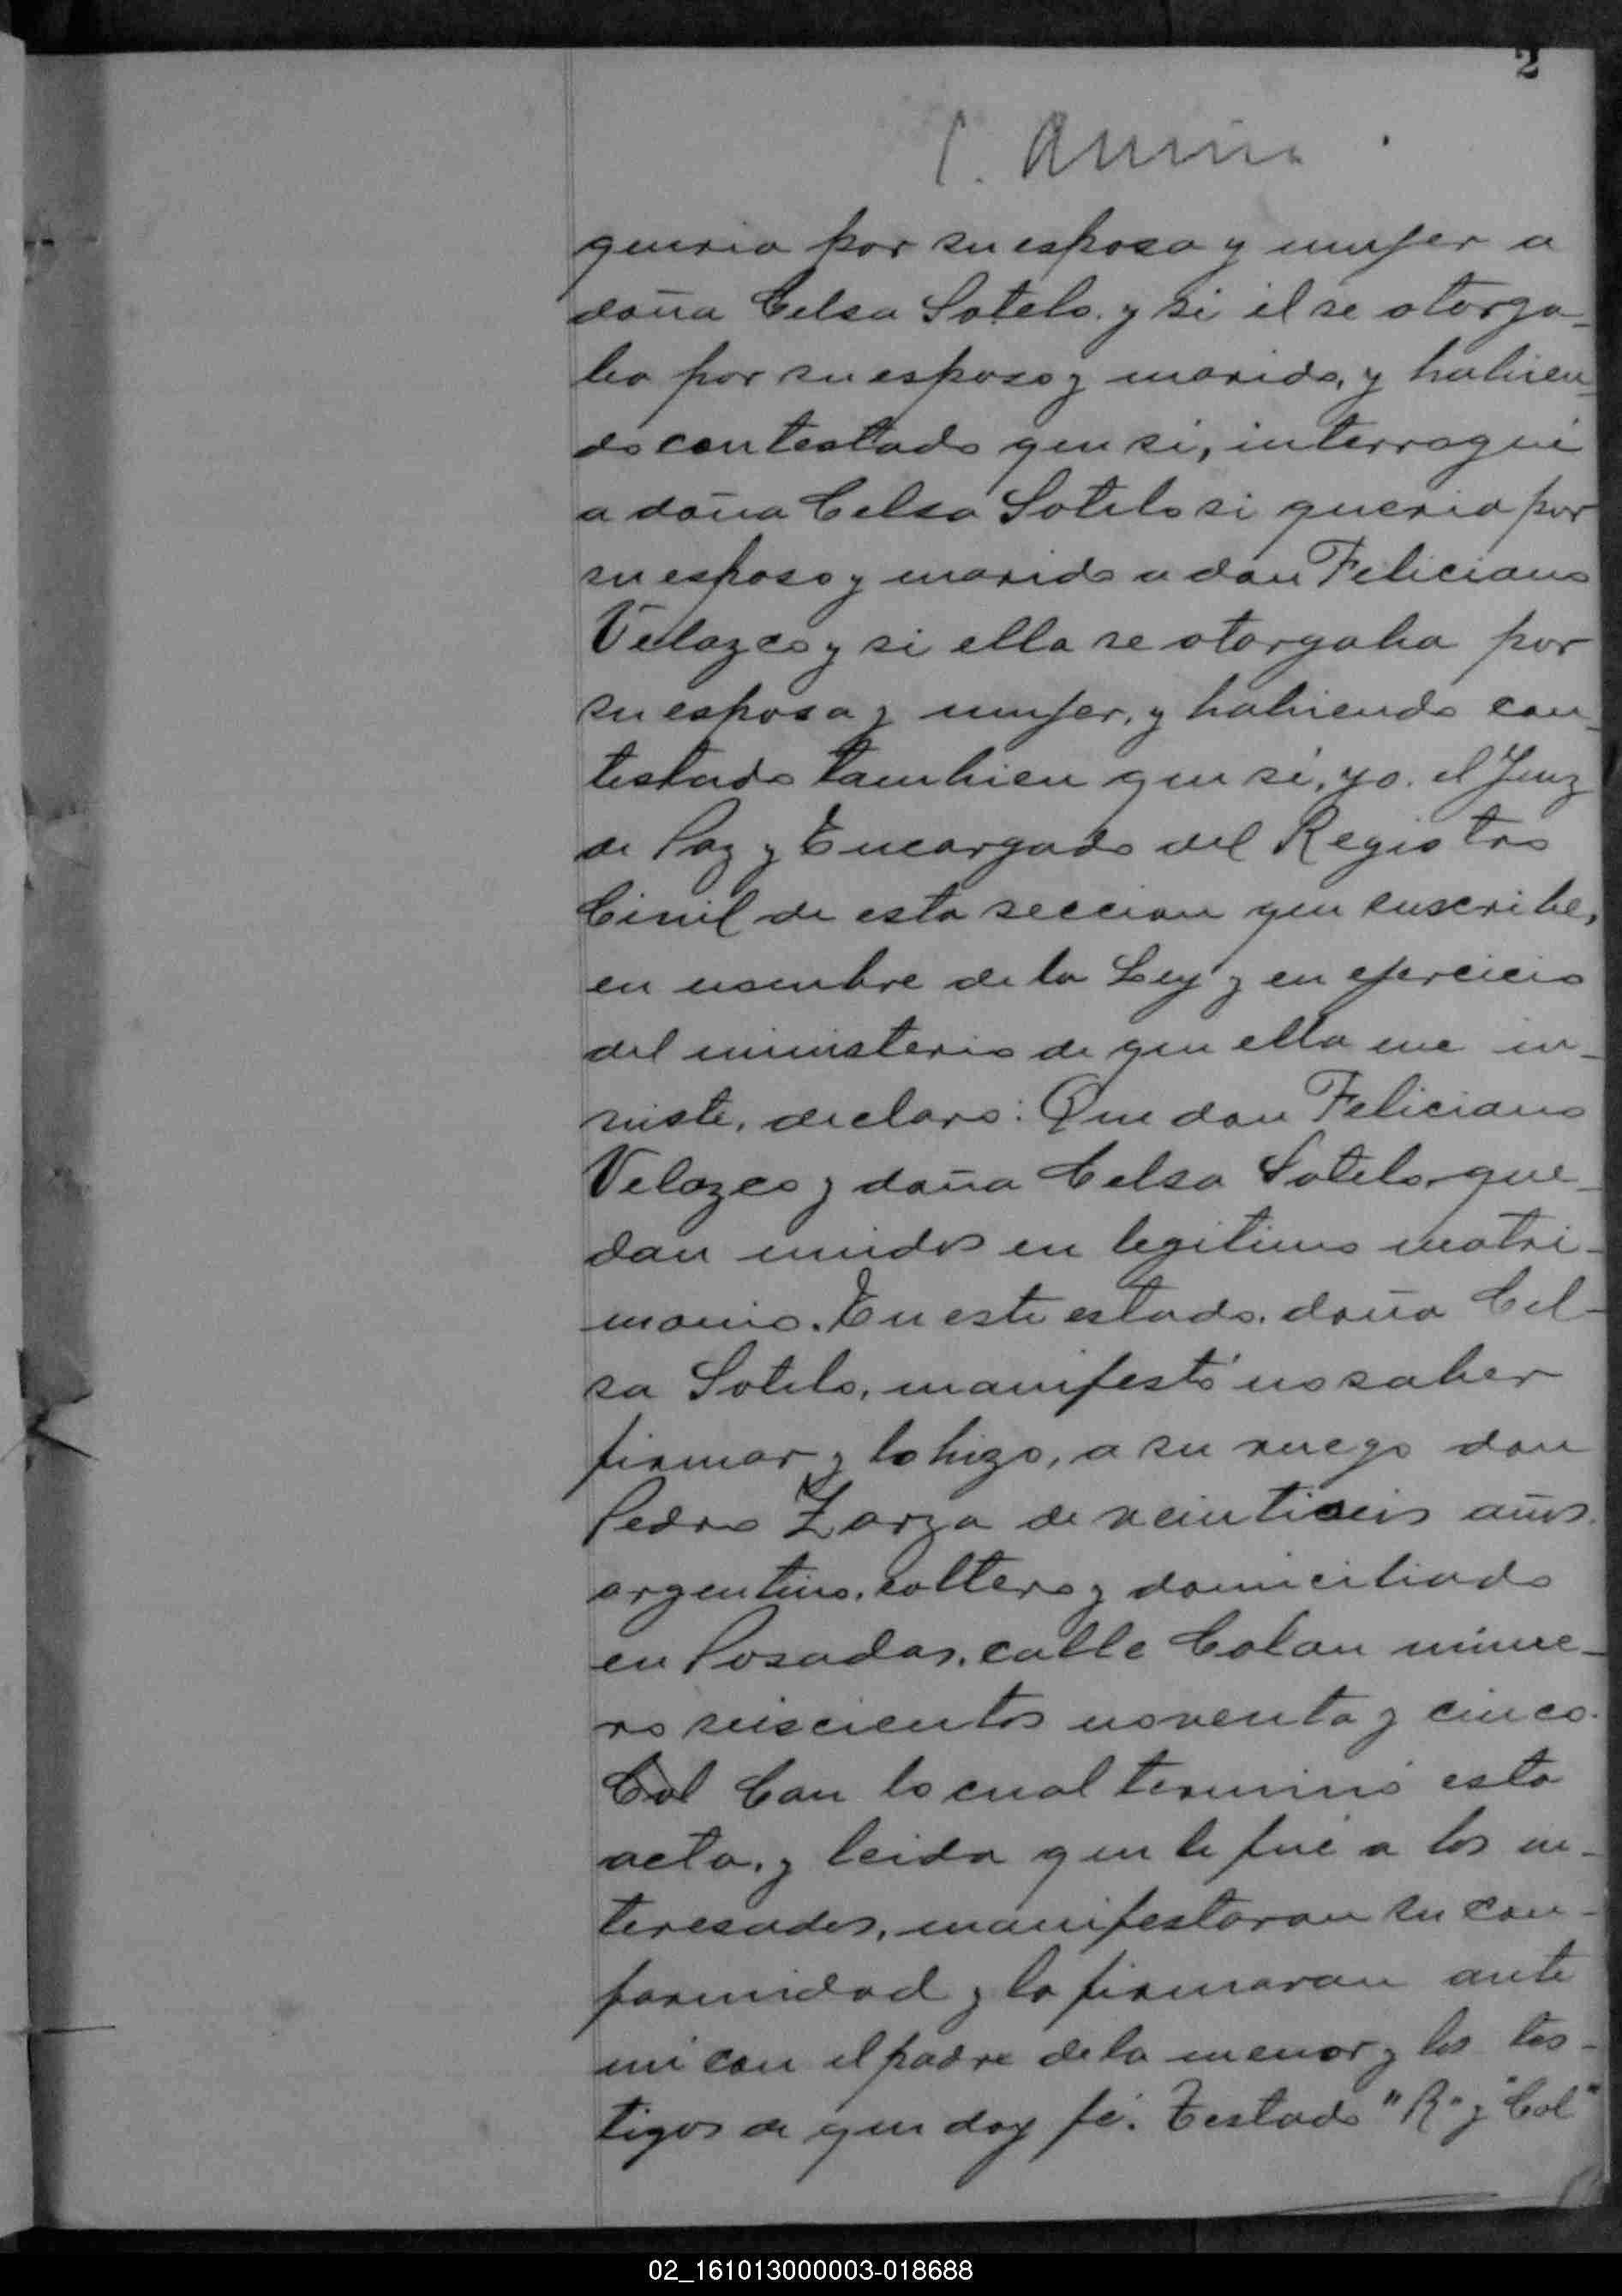 2
queria por su esposa y mujer a
doña Celsa Sotelo. y si él se otorga-
ba por su esposo y marido, y habien-
do contestado que si, interrogué
a doña Celsa Sotelo si queria por
su esposo y marido a don Feliciano
Velazco y si ella se otorgaba por
su esposa y mujer, y habiendo con-
testado tambien que si, yo. el Juez
de Paz y Encargado del Registro
Civil de esta seccion que suscribe,
en nombre de la Ley y en ejercicio
del ministerio de que ella me in-
viste, declaro: Que don Feliciano
Velazco y doña Celsa Sotelo que-
dan unidos en legitimo matri-
monio. En este estado. doña Cel-
sa Sotelo, manifestó no saber
firmar y lo hizo, a su ruego don
Pedro Zarza de veintiseis años.
argentino. soltero y domiciliado
en Posadas. calle Colon núme-
ro seiscientos noventa y cinco.
Col Con lo cual terminó esta
acta. y leida que le fué a los in-
teresados, manifestaron su con-
formidad y la firmaron ante
mi con el padre de la menor y los tes-
tigos de que doy fé. Testado "R" y "Col"
02_161013000003-018688